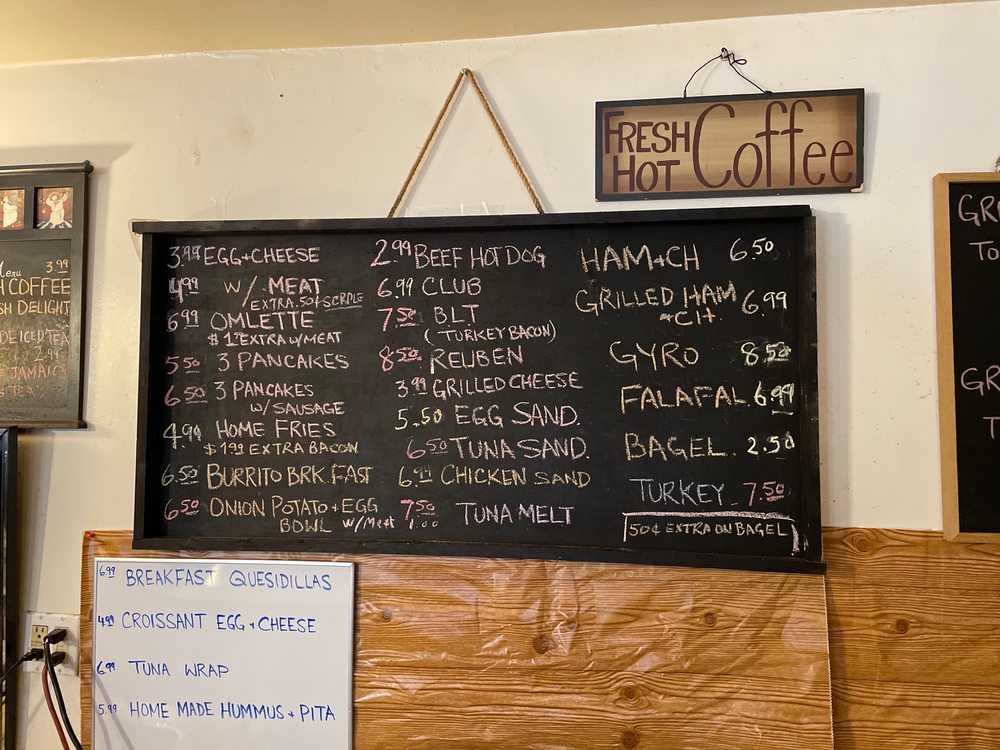 FRESH HOT Coffee
Menu 3.99
H COFFEE
SH DELIGHT
DE ICED TEA
2.99
JAMAICA
3.99 EGG + CHEESE
4.99 W/ MEAT
EXTRA .50¢ SCRPLE
6.99 OMLETTE
$1.99 EXTRA W/MEAT
5.50 3 PANCAKES
6.50 3 PANCAKES
W/ SAUSAGE
4.99 HOME FRIES
$1.99 EXTRA BACON
6.50 BURRITO BRK.FAST
6.50 ONION POTATO + EGG
BOWL W/Meat 1.00
2.99 BEEF HOT DOG
6.99 CLUB
7.50 BLT
(TURKEY BACON)
8.50 REUBEN
3.99 GRILLED CHEESE
5.50 EGG SAND.
6.50 TUNA SAND.
6.99 CHICKEN SAND
7.50 TUNA MELT
HAM + CH 6.50
GRILLED HAM 6.99
+ CH.
GYRO 8.50
FALAFAL 6.99
BAGEL 2.50
TURKEY 7.50
50¢ EXTRA ON BAGEL
GR
TO
GR
T
6.99 BREAKFAST QUESIDILLAS
4.99 CROISSANT EGG + CHEESE
6.99 TUNA WRAP
5.99 HOME MADE HUMMUS + PITA